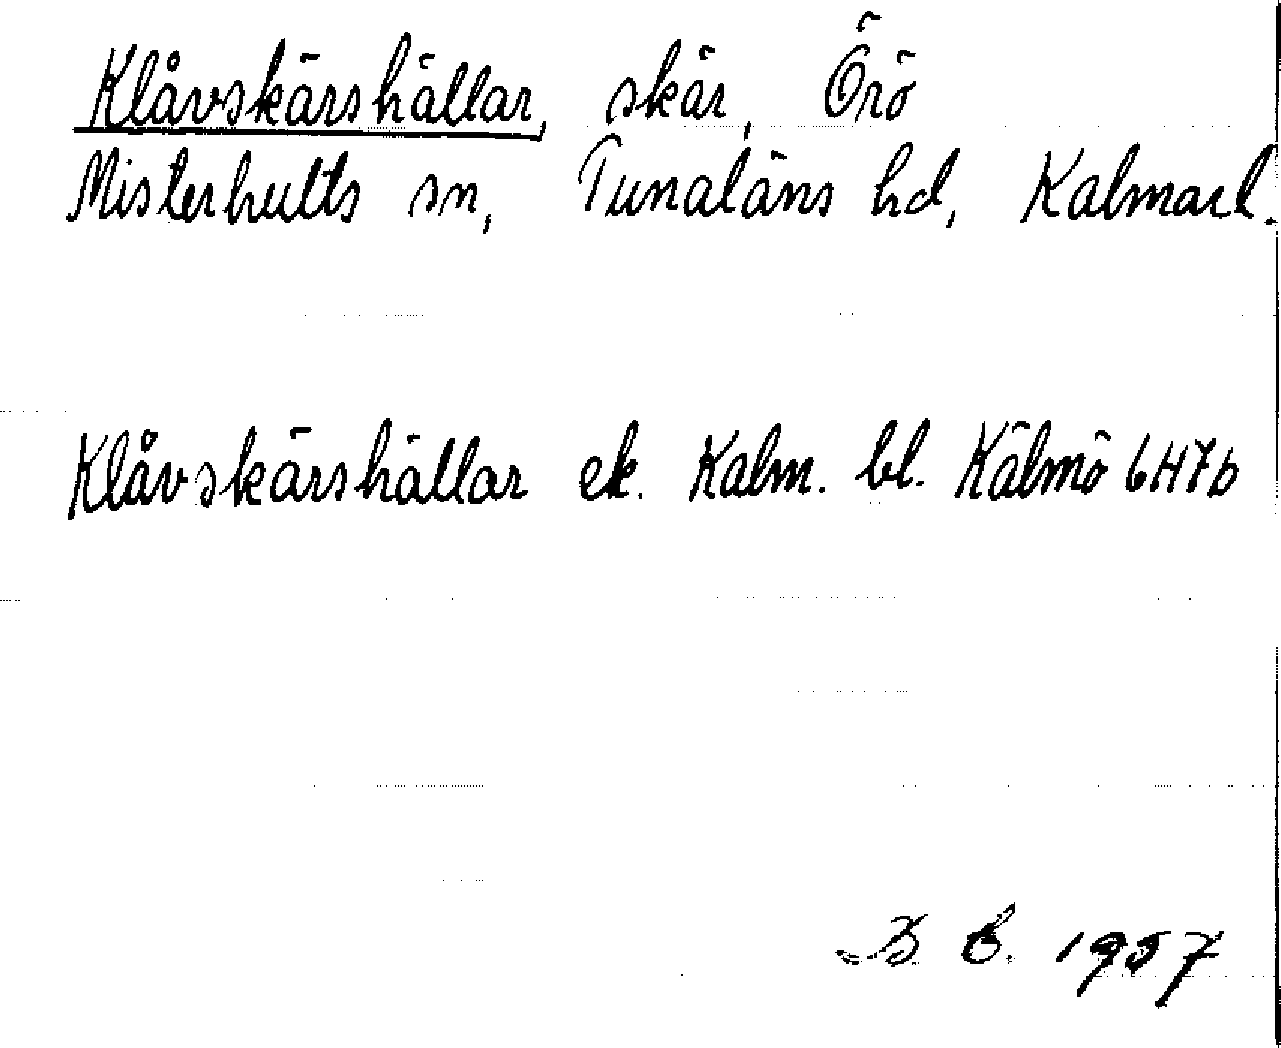 Klåvskärshällar, skär, Örö
Misterhults sn, Tunaläns hd, Kalmarl.
Klåvskärshällar ek. Kalm. bl. Kälmö 6H7b
B E. 1957